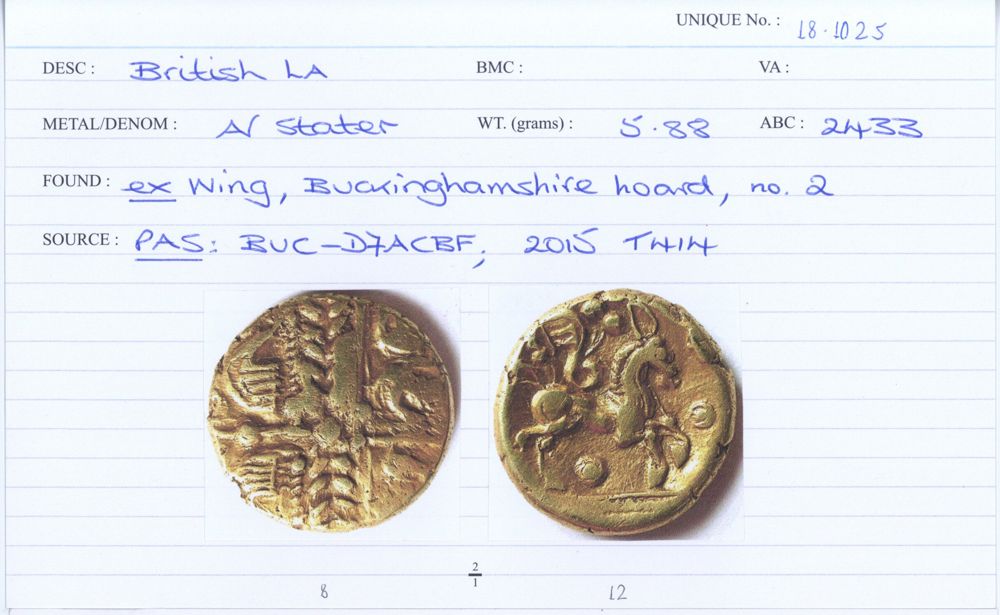 UNIQUE No. : 18.1025
DESC : British LA BMC : VA :
METAL/DENOM : AV Stater WT. (grams) : 5.88 ABC : 2433
FOUND : ex Wing, Buckinghamshire hoard, no. 2
SOURCE : PAS: BUC-D7ACBF; 2015 T414
2
1
8 12